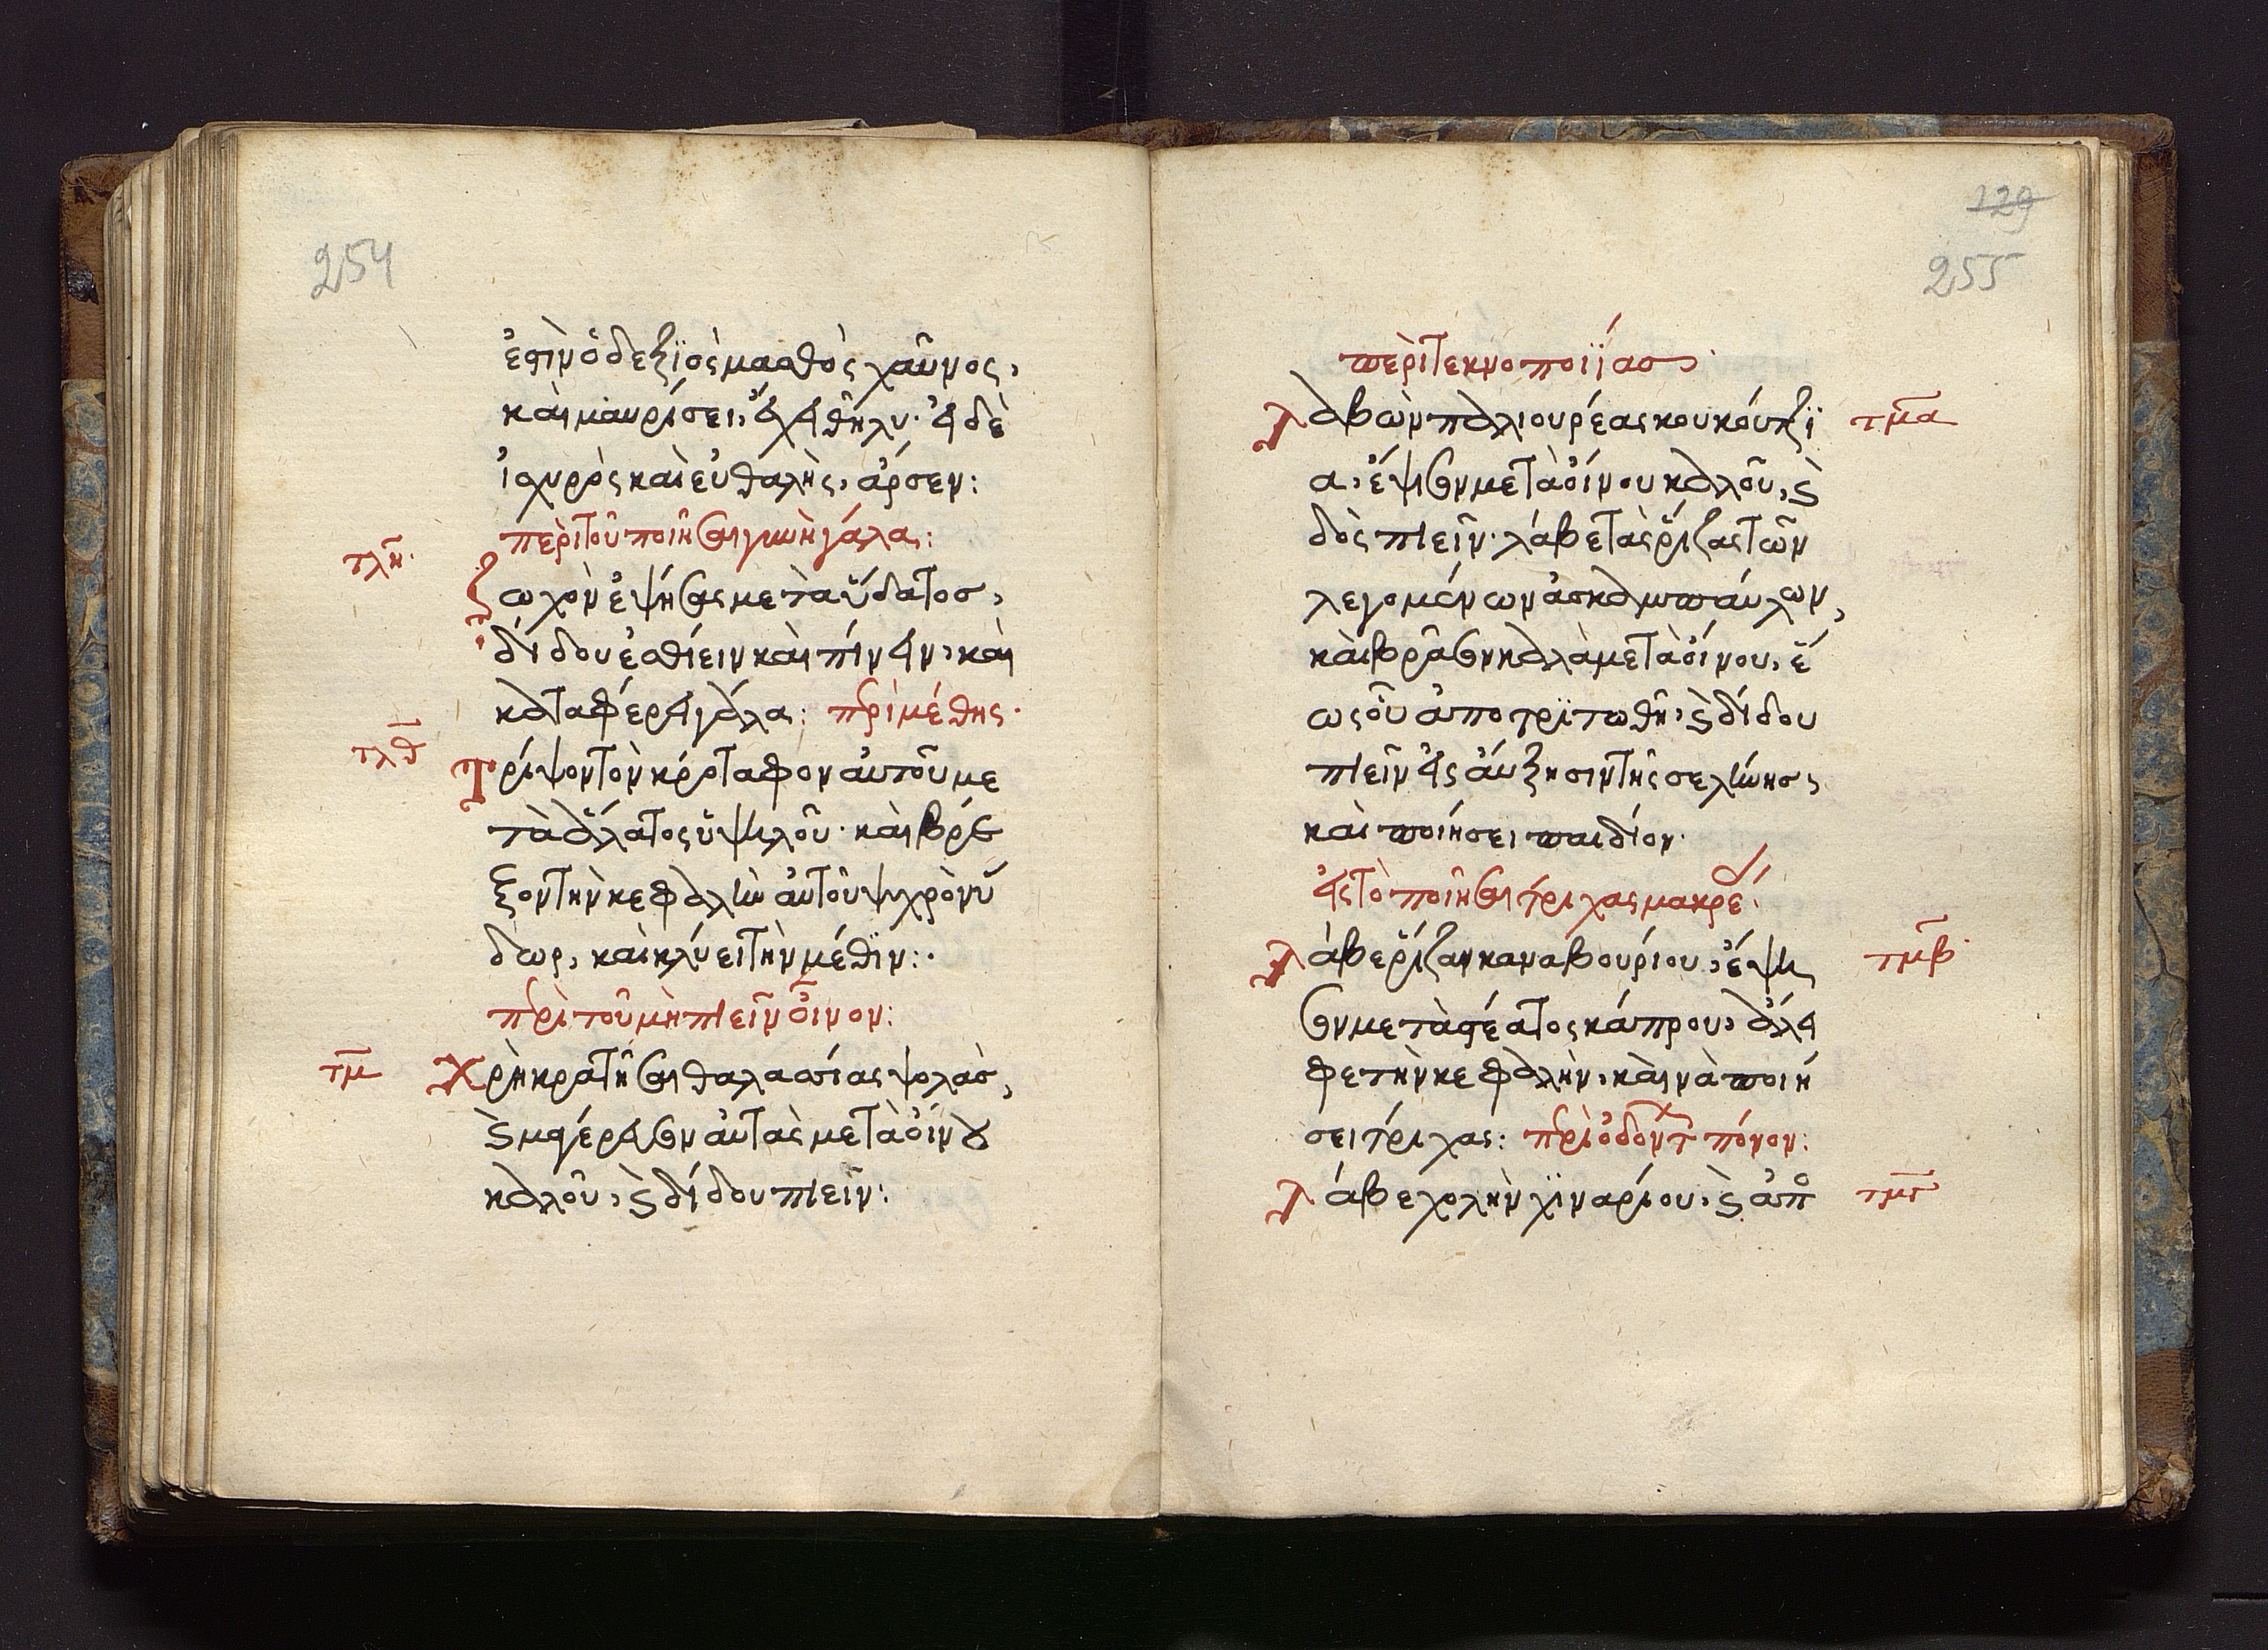 254
ἐστὶν ὁ δεξϊὸς μασθὸς χαῦνος,
καὶ μαυρίσει, ἔχει θῆλυ· εἰ δὲ
ἰσχυρὸς καὶ εὐθαλὴς, ἄρσεν:
περὶ τοῦ ποιῆσαι γυνὴ γάλα:
τλη
ζωχὸν ἑψήσας μετὰ ὕδατος,
δίδου ἐσθίειν καὶ πίνειν, καὶ
καταφέρει γάλα: πρὶ μέθης·
τλθ
Τρίψον τὸν κρόταφον αὐτοῦ με
τὰ ἅλατος ὑψιλοῦ· καὶ βρέ
ξον τὴν κεφαλὴν αὐτοῦ ψυχρὸν ὕ
δωρ, καὶ κλύει τὴν μέθϊν:·
πρὶ τοῦ μὴ πιεῖν οἶνον:
τμ
Χρὴ κρατῆσαι θαλασσίας ψολὰς,
καὶ μφέρει σὺν αὐτὰς μετὰ οἴνου
καλοῦ, καὶ δίδου πιεῖν:
129
255
περὶ τεκνοποιΐας·
Λαβὼν παλιουρέας κουκούτζϊ
τμα
α, ἕψισον μετὰ οἴνου καλοῦ, καὶ
δὸς πιεῖν· λάβε τὰς ῥίζας τῶν
λεγομένων ἀσκαμπαύλων,
καὶ βράσον καλὰ μετὰ οἴνου, ἕ
ως οὗ ἀποτρϊτωθῆ, καὶ δίδου
πιεῖν εἰς αὔξησιν τῆς σελήνης,
καὶ ποιήσει παιδίον·
εἰς τὸ ποιῆσαι τρίχας μακρέ·
Λάβε ῥίζαν καναβουρίου, ἕψι
τμβ
σον μετὰ στέατος κάπρου, ἄλει
φε τὴν κεφαλὴν, καὶ νὰ ποιή
σει τρίχας: πρὶ ὀδόντ πόνον:
Λάβε χολὴν χϊναρίου, καὶ ἀπὸ
τμγ